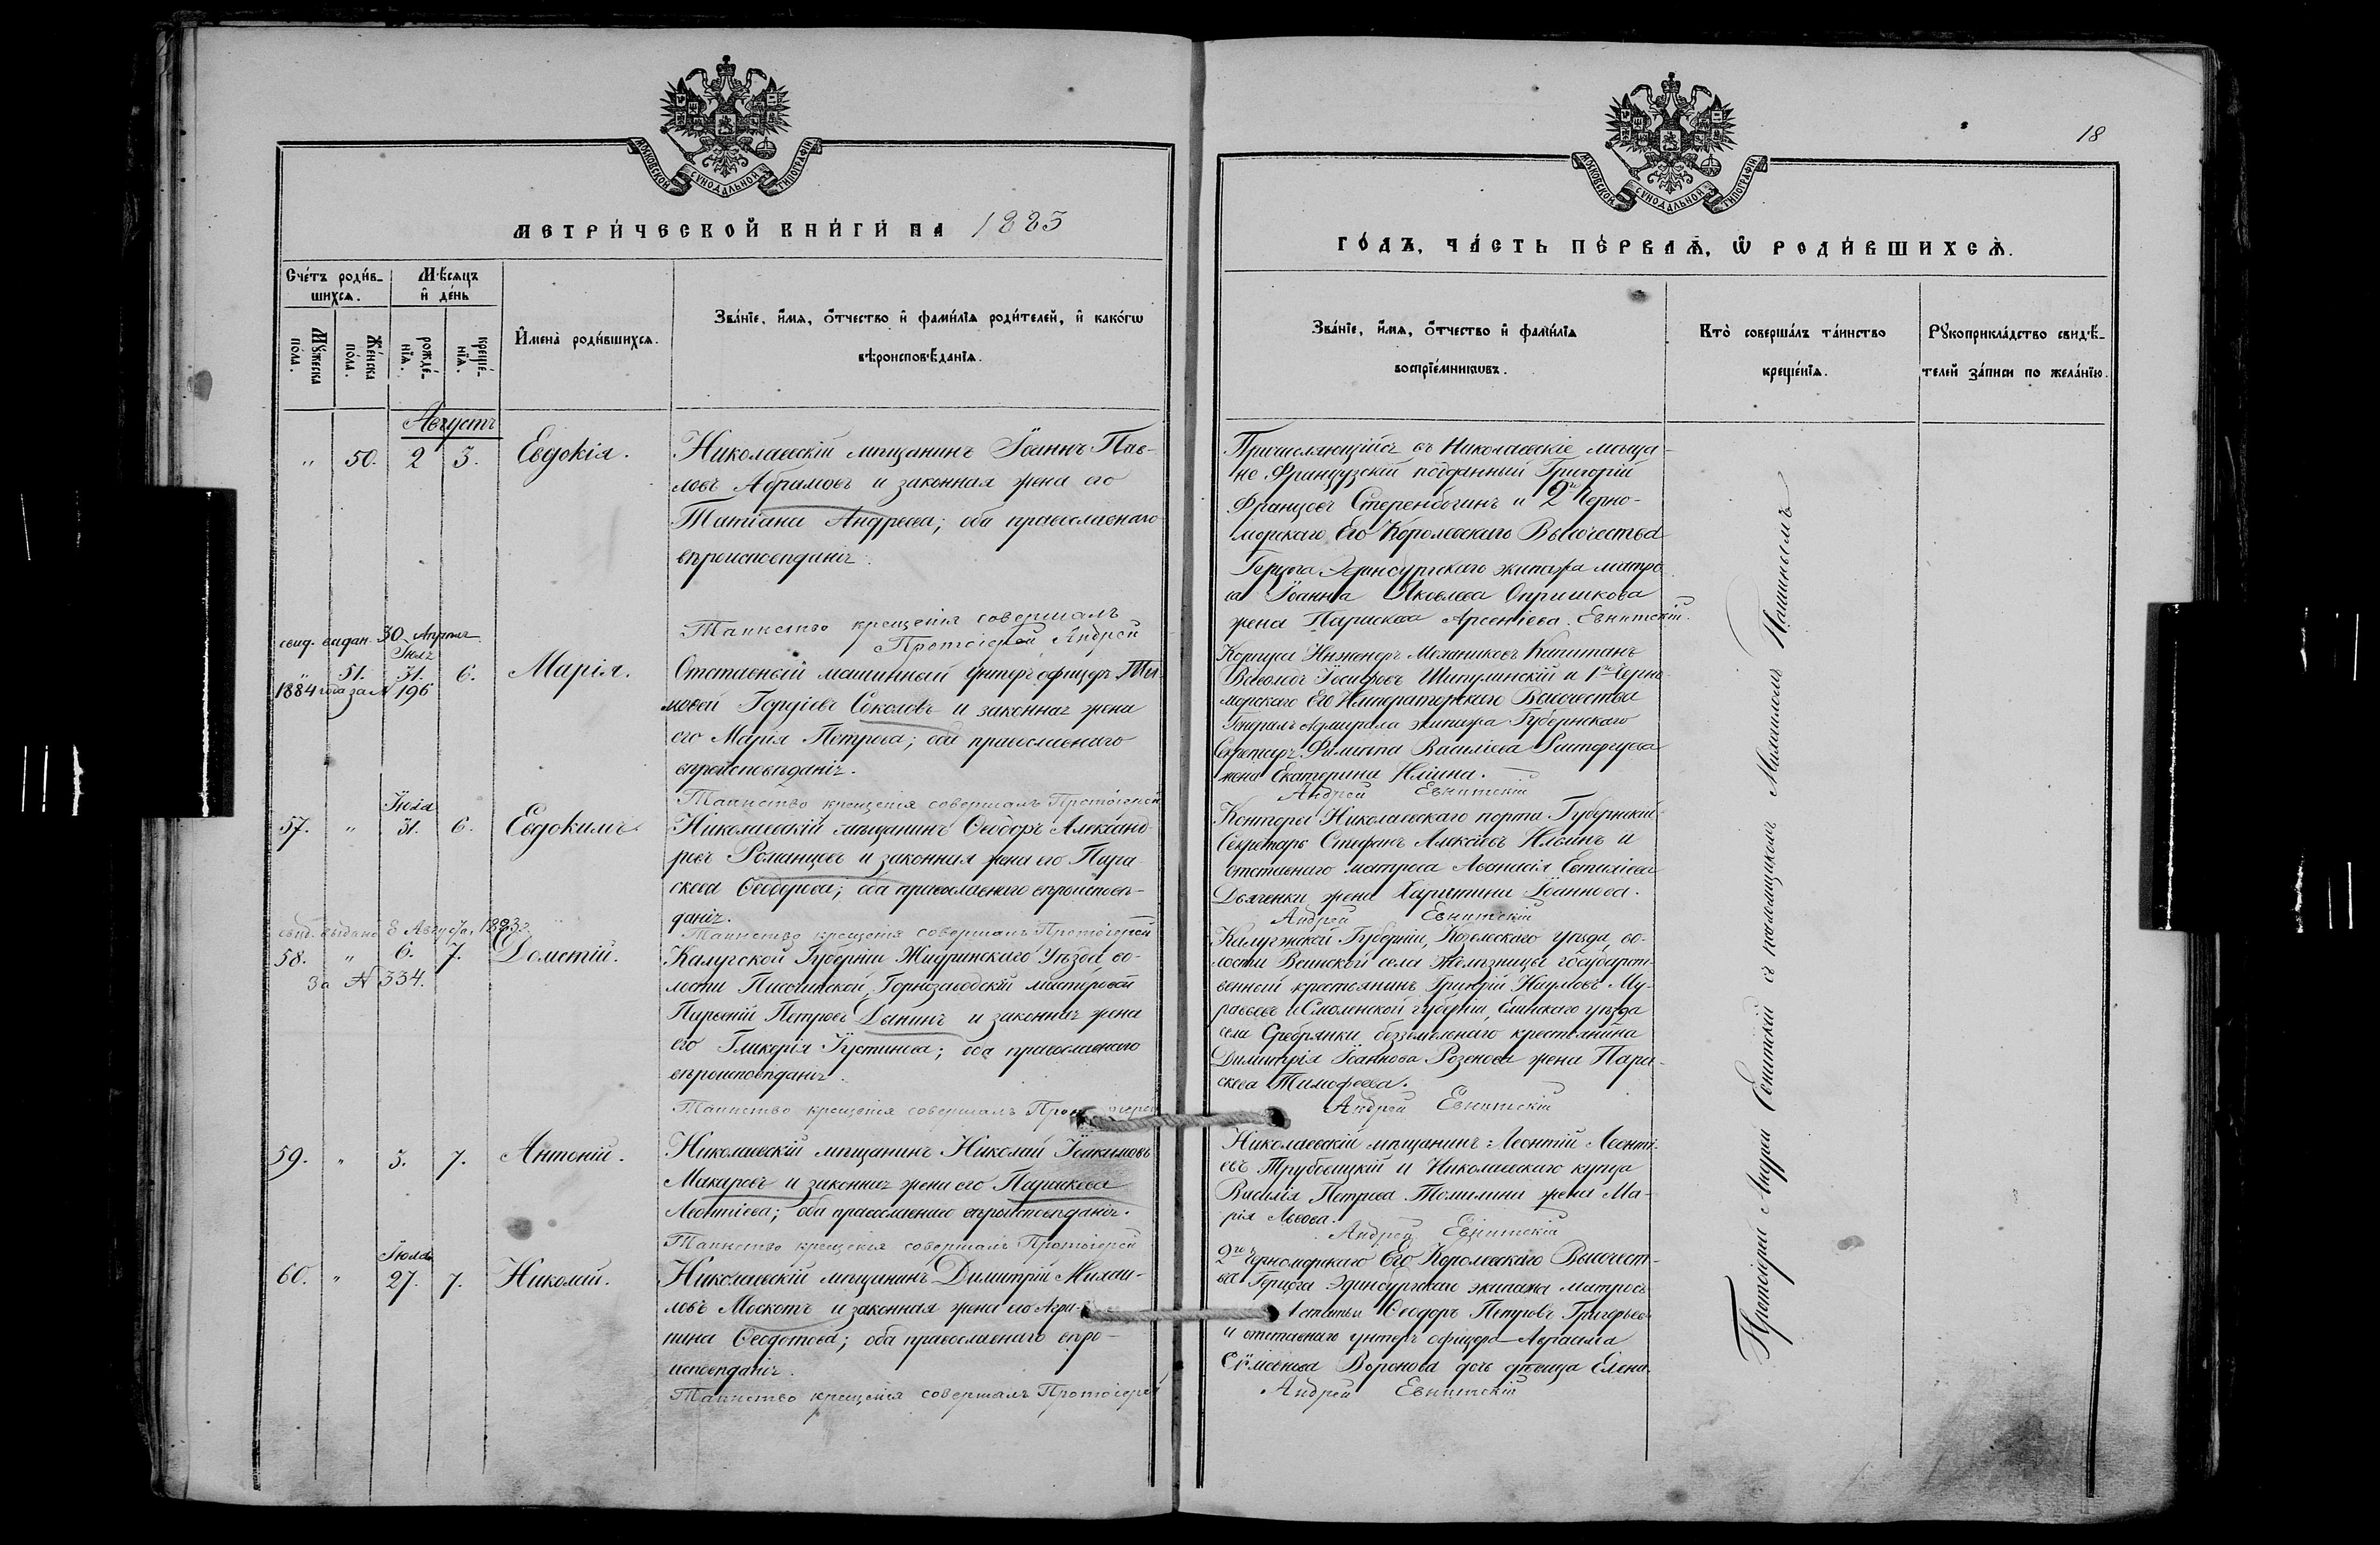 МОСКОВСКОЙ СУНОДАЛЬНОЙ ТИПОГРАФІИ
МЕТРИ́ЧЕСКОЙ КНИ́ГИ НА 1883
Сче́тъ роди́в-
шихсѧ.
Мѣ́сѧцъ
и҆ де́нь
Мꙋ́жеска
по́ла.
Же́нска
по́ла.
рожде́-
нїѧ.
креще́-
нїѧ.
И҆мена̀ роди́вшихсѧ.
Зва́нїе, и҆́мѧ, ѻ҆́тчество и҆ фами́лїѧ роди́телей, и҆ како́гѡ
вѣроисповѣ́данїѧ.
Августъ
" 50. 2 3. Евдокія.
Николаевскій мѣщанинъ Іоаннъ Пав-
ловъ Абрамовъ и законная жена его
Татіана Андреева; оба православнаго
вѣроисповѣданія.
Таинство крещенія совершалъ
Протоіерей Андрей
свид. выдан. 30 Апрѣля
Іюля
" 51. 31. 6. Марія.
1884 года за N 196
Отставный машинный унтеръ офицеръ
Гордіевъ Соколовъ и законная жена
его Марія Петрова; оба православнаго
вѣроисповѣданія.
Таинство крещенія совершалъ Протоіерей
Іюля
57. " 31. 6. Евдокимъ.
Николаевскій мѣщанинъ Ѳеодоръ Александ-
ровъ Романцовъ и законная жена его Пара-
скева Ѳеодорова; оба православнаго вѣроисповѣ-
данія.
Таинство крещенія совершалъ Протоіерей
свид. выдано 8 Августа, 1883 г.
58. " 6. 7. Дометій.
За N 334.
Калугской Губерніи Жиздринскаго Уѣзда во-
лости Песоченской, Горнозаводскій мастеровой
Петровъ Дынинъ и законная жена
его Гликерія Іустинова; оба православнаго
вѣроисповѣданія.
Таинство крещенія совершалъ Протоіерей
59. " 5. 7. Антоній.
Николаевскій мѣщанинъ Николай Іоакимовъ
Макаровъ и законная жена его Параскева
Леонтіева; оба православнаго вѣроисповѣданія.
Таинство крещенія совершалъ Протоіерей
Іюля
60. " 27. 7. Николай.
Николаевскій мѣщанинъ Димитрій Михаи-
ловъ Москотъ и законная жена его Агри-
пина Ѳеодотова; оба православнаго вѣро-
исповѣданія.
Таинство крещенія совершалъ Протоіерей
18
МОСКОВСКОЙ СУНОДАЛЬНОЙ ТИПОГРАФІИ
ГО́ДЪ, ЧА́СТЬ ПЕ́РВАѦ, Ѡ҆ РОДИ́ВШИХСѦ.
Зва́нїе, и҆́мѧ, ѻ҆́тчество и҆ фами́лїѧ
воспрїе́мникѡвъ.
Кто̀ соверша́лъ та́инство
креще́нїѧ.
Рꙋкоприкла́дство свидѣ́-
телей за́писи по жела́нїю.
Причисляющійся въ Николаевскіе мѣща-
не Французскій подданный Григорій
Францовъ Стеренбогинъ и 2го Черно-
морскаго Его Королевскаго Высочества
Герцога Эдинбургскаго экипажа матро-
са Іоанна Яковлева Опришкова
жена Параскева Арсеніева. Евнитскій.
Корпуса Инженеръ Механиковъ Капитанъ
Всеволодъ Іосифовъ Шипулинскій и 1го Черно-
морскаго Его Императорскаго Высочества
Генералъ Адмирала экипажа Губернскаго
Секретаря Филиппа Василіева
жена Екатерина Иліина.
Андрей Евнитскій
Конторы Николаевскаго порта Губернскій
Секретарь Стефанъ Алексіевъ Ильинъ и
отставнаго матроса Аѳанасія Евтихіева
Дьяченки жена Харитина Іоаннова.
Андрей Евнитскій
Калужской Губерніи, Козельскаго уѣзда, во-
лости села Желѣзницы государст-
венный крестьянинъ Григорій Наумовъ Му-
равьевъ и Смоленской губерніи, Ельнскаго уѣзда
села Сребрянки безземельнаго крестьянина
Димитрія Іоаннова Розенова жена Пара-
скева Тимофеева.
Андрей Евнитскій
Николаевскій мѣщанинъ Леонтій Леонті-
евъ Трубовицкій и Николаевскаго купца
Василія Петрова Толмина жена Ма-
рія Львова.
Андрей Евнитскій
2го Черноморскаго Его Королевскаго Высочест-
ва Герцога Эдинбургскаго экипажа матросъ
1 статьи Ѳеодоръ Петровъ Григорьевъ
и отставнаго унтеръ офицера
Симеонова Воронова дочь дѣвица Елена.
Андрей Евнитскій
Протоіерей Андрей Евнитскій съ псаломщикомъ Михаиломъ